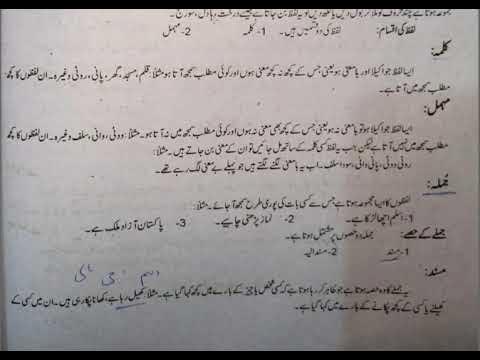 مجموعہ ہوتا ہے چند حروف کو ملا کر بول دیں یا لکھ دیں تو یہ لفظ بن جاتا ہے جیسے درخت، بادل، سورج۔
لفظ کی اقسام: لفظ کی دو قسمیں ہیں۔ 1- کلمہ 2- مہمل
کلمہ:
ایسا لفظ جو اکیلا اور بامعنی ہو یعنی جس کے کچھ نہ کچھ معنی ہوں اور کوئی مطلب سمجھ میں آتا ہو مثلاً: قلم، مسجد، گھر، پانی، روٹی وغیرہ۔ ان لفظوں کا کچھ
مطلب سمجھ میں آتا ہے۔
مہمل:
ایسا لفظ جو اکیلا ہو تو بامعنی نہ ہو یعنی جس کے کچھ بھی معنی نہ ہوں اور کوئی مطلب سمجھ میں نہ آتا ہو۔ مثلاً: ووٹی، وانی، سلف وغیرہ۔ ان لفظوں کا کچھ
مطلب سمجھ میں نہیں آتا ہے لیکن جب یہ لفظ کسی کلمہ کے ساتھ مل جائیں تو ان کے معنی بن جاتے ہیں۔ مثلاً:
روٹی ووٹی، پانی وانی، سودا سلف۔ اب یہ بامعنی لفظ لگنے لگتے ہیں جو پہلے بے معنی لگ رہے تھے۔
جُملہ:
لفظوں کا ایسا مجموعہ ہوتا ہے جس سے کسی بات کی پوری طرح سمجھ آ جائے۔ مثلاً:
1- اسلم اچھا لڑکا ہے۔ 2- نماز پڑھنی چاہیے۔ 3- پاکستان آزاد ملک ہے۔
جملے کے حصے: جملہ دو حصوں پر مشتمل ہوتا ہے۔
1- مسند 2- مسند الیہ
مسند:
یہ جملے کا وہ حصہ ہوتا ہے جو ظاہر کر رہا ہوتا ہے کہ کسی شخص یا چیز کے بارے میں کچھ کہا گیا ہے۔ مثلاً: کھیل رہا ہے، کھانا پکا رہی ہیں۔ ان میں کسی کے
کھیلنے یا کسی کے کچھ پکانے کے بارے میں کہا گیا ہے۔